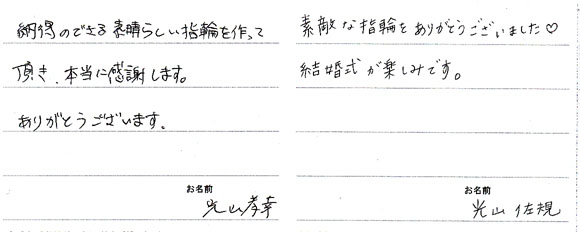 納得のできる素晴らしい指輪を作って
頂き、本当に感謝します。
ありがとうございます。
お名前
光山孝幸
素敵な指輪をありがとうございました♡
結婚式が楽しみです。
お名前
光山 佐規